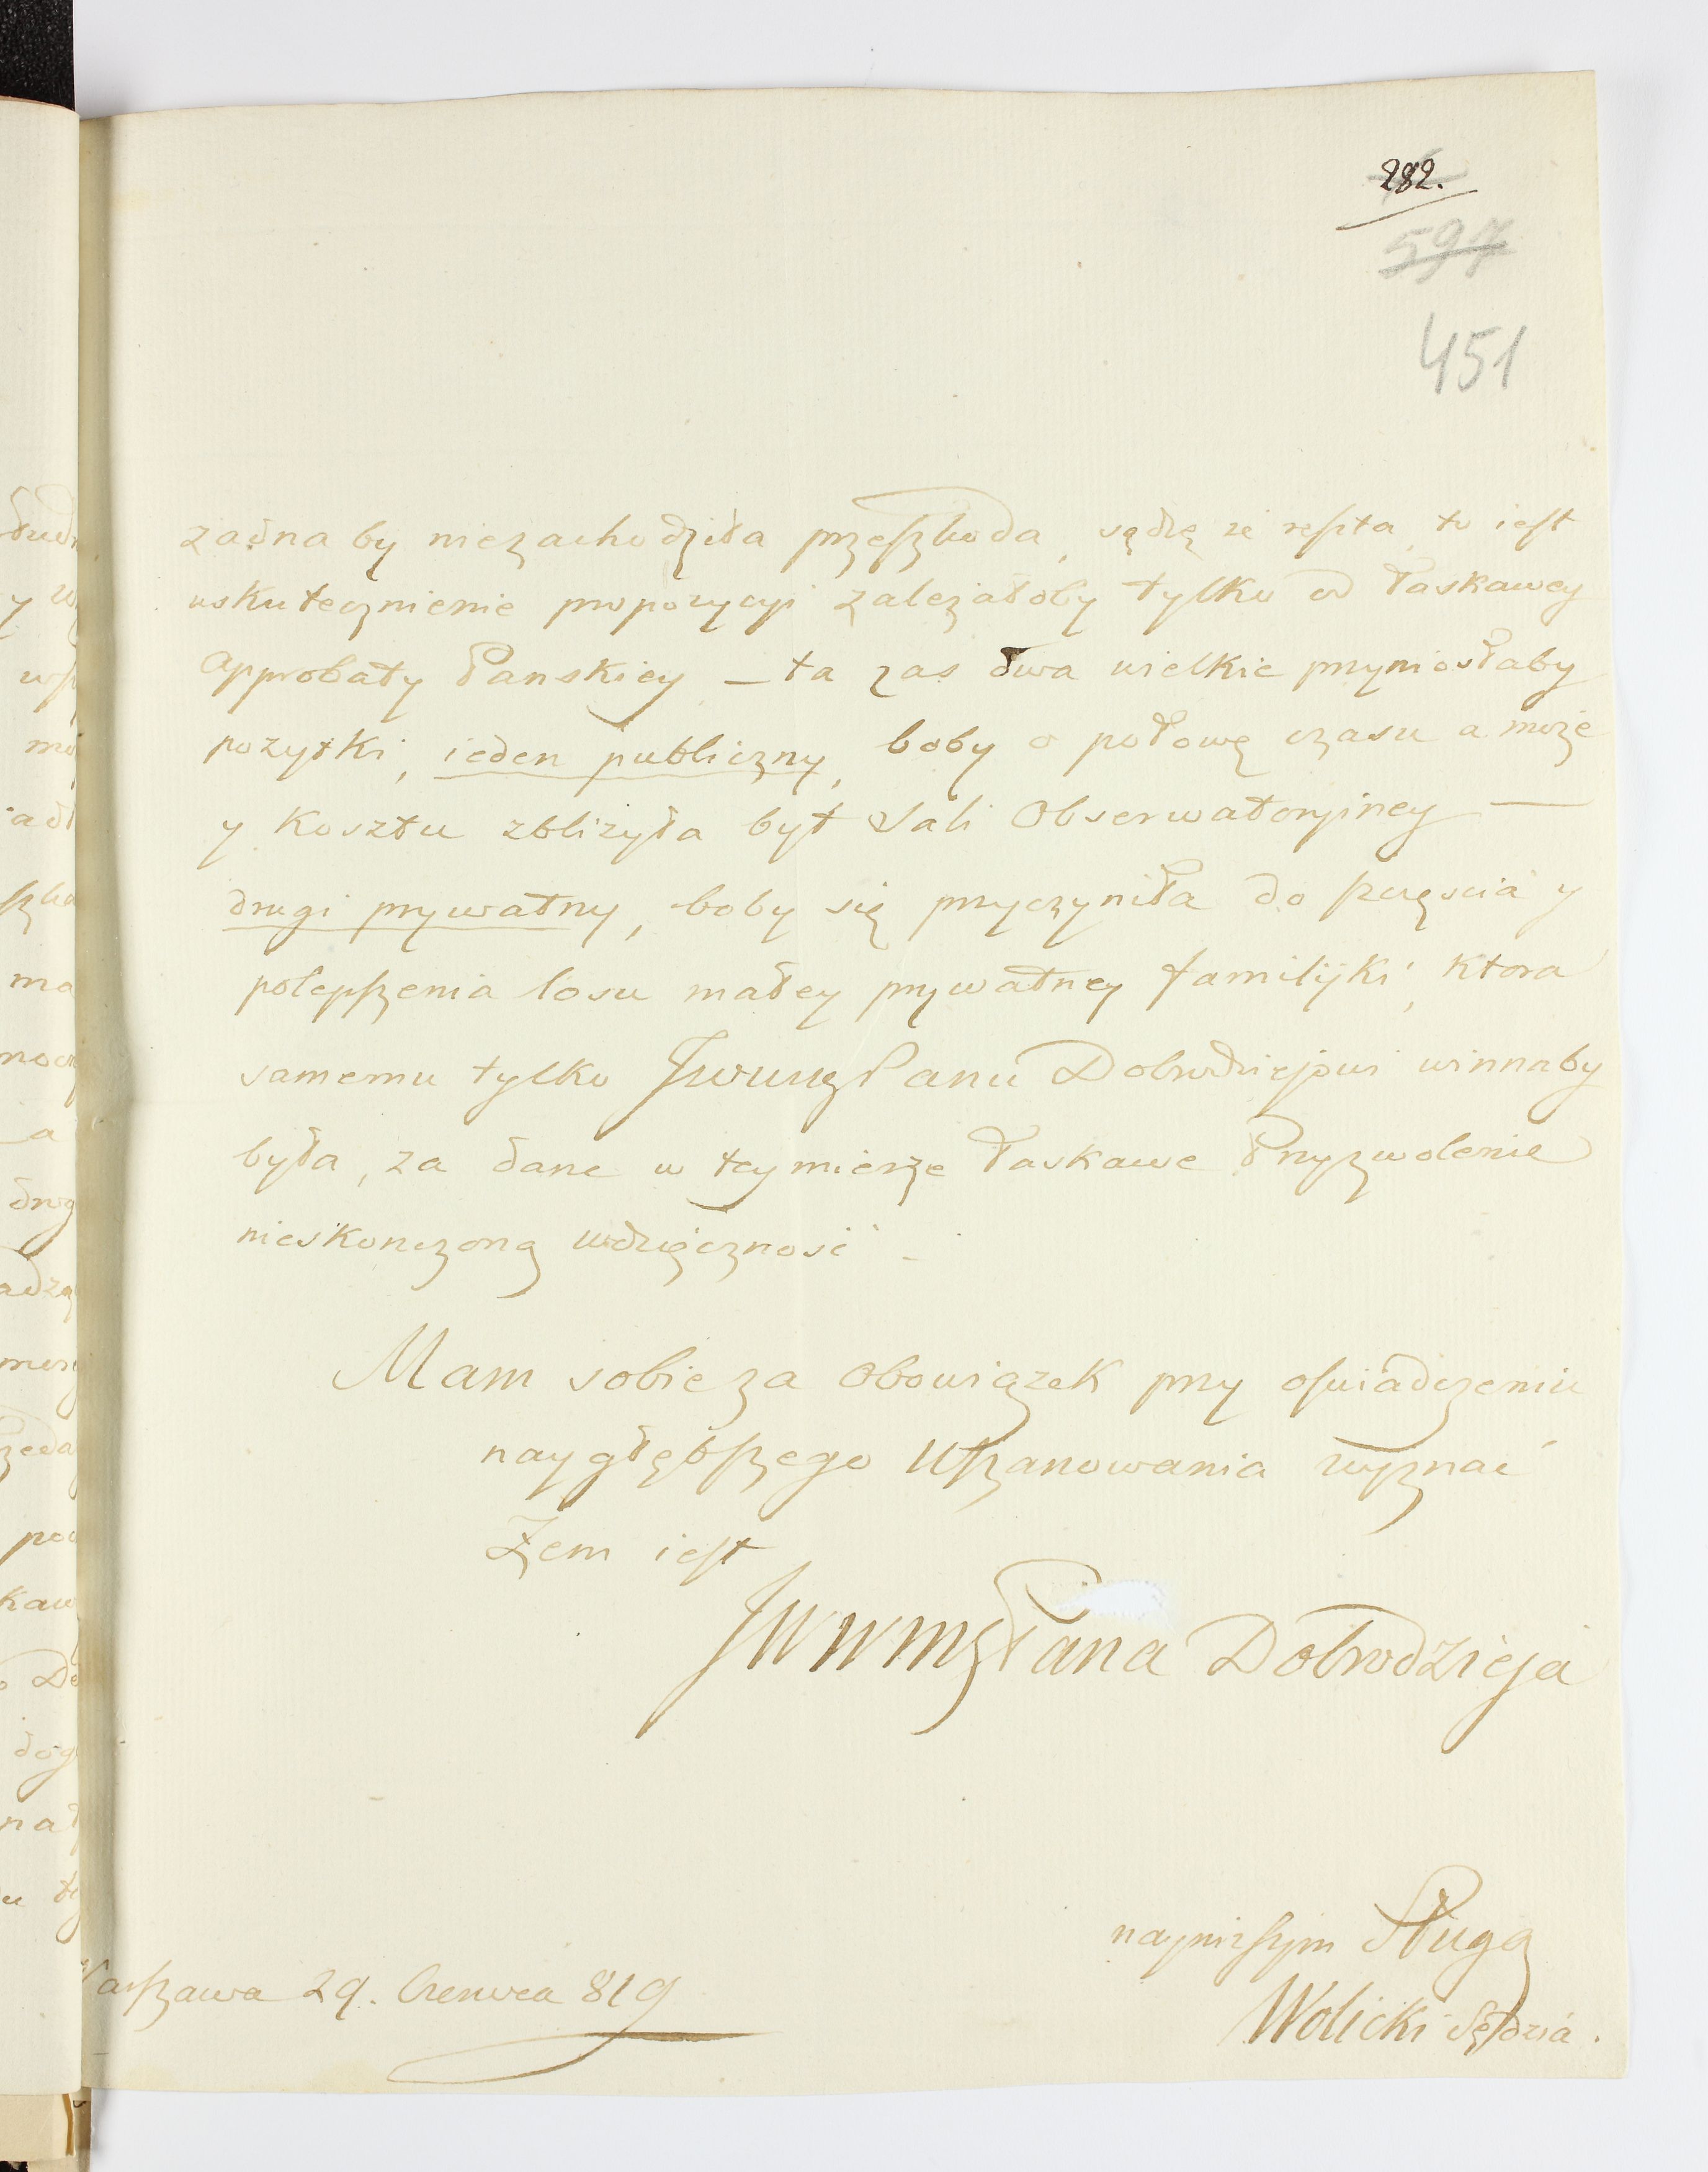 282.
597
451
żadna by niezachodziła przeszkoda, sądzę że reszta, to iest
uskutecznienie propozycyi zależałoby tylko od łaskawey
Approbaty Panskiey – ta zas dwa wielkie przyniosłaby
pożytki, ieden publiczny, boby o połowę czasu a może
y kosztu zbliżyła byt Sali Obserwatoryiney —
drugi prywatny, boby się przyczyniła do szczęscia y
polepszenia losu małey prywatney familijki, ktora
samemu tylko Panu Dobrodziejowi winnaby
była, za dane w tey mierze łaskawe Przyzwolenie
nieskonczoną wdzięczność –
Mam sobie za Obowiązek przy oświadczeniu
naygłębszego Uszanowania wyznać
Żem iest
JWWmgPana Dobrodzieja
nayniższym Sługą
Wolicki Sędzia.
Warszawa 29. Czerwca 819